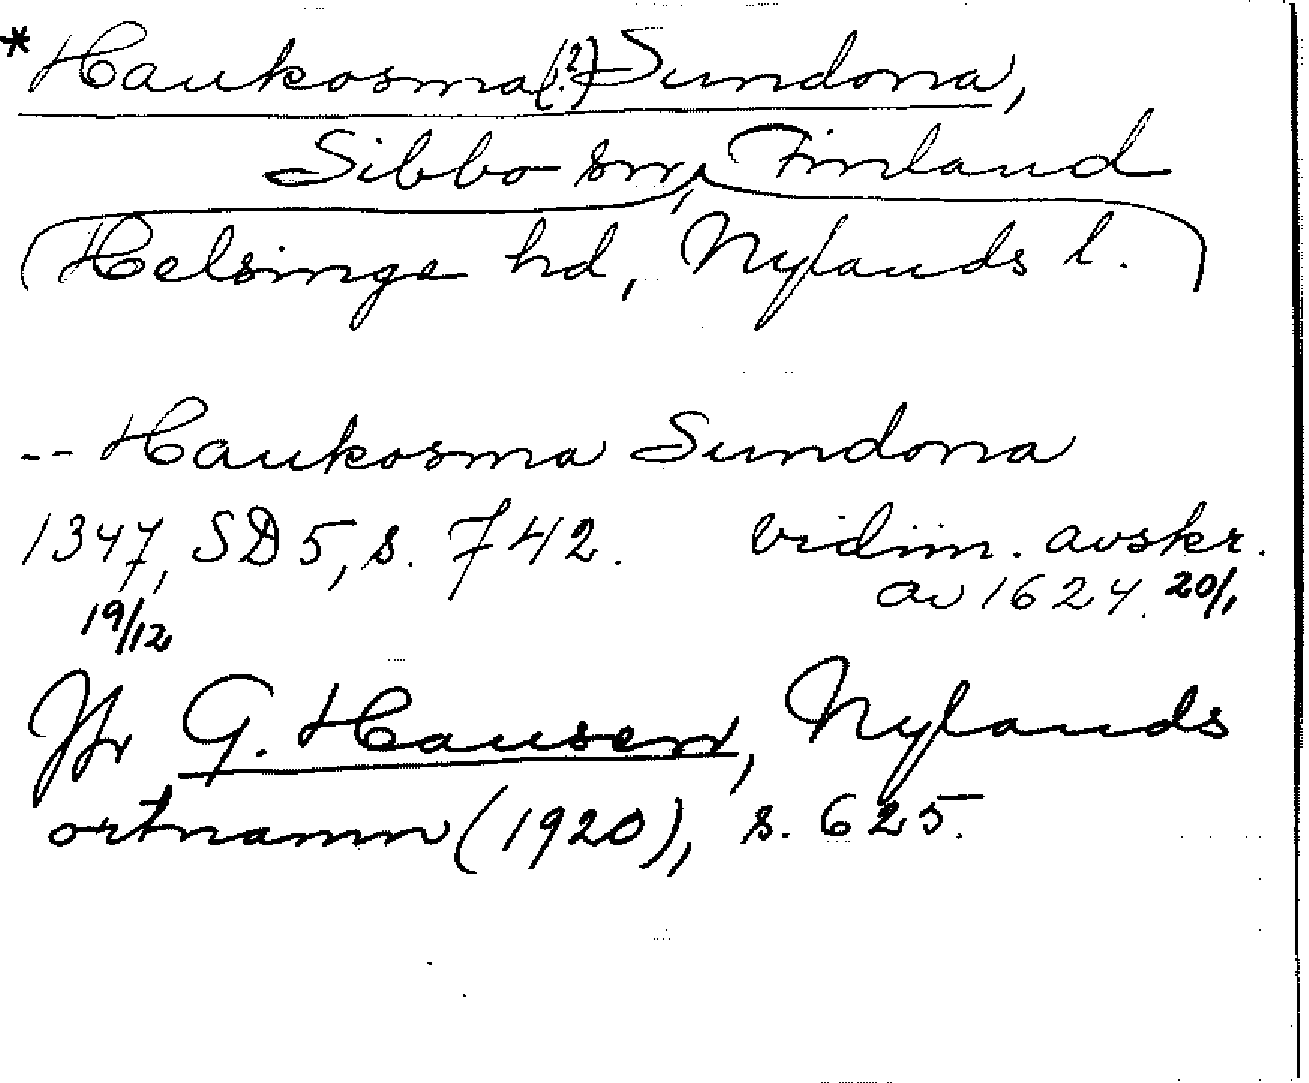 *Haukosma(?) Sundona,
Sibbo sn, Finland
(Helsinge hd, Nylands l.)
-- Haukosma Sundona
1347, SD 5, s. 742. vidim. avskr.
19/12 av 1624. 20/1
Jfr G. Hausen, Nylands
ortnamn (1920), s. 625.